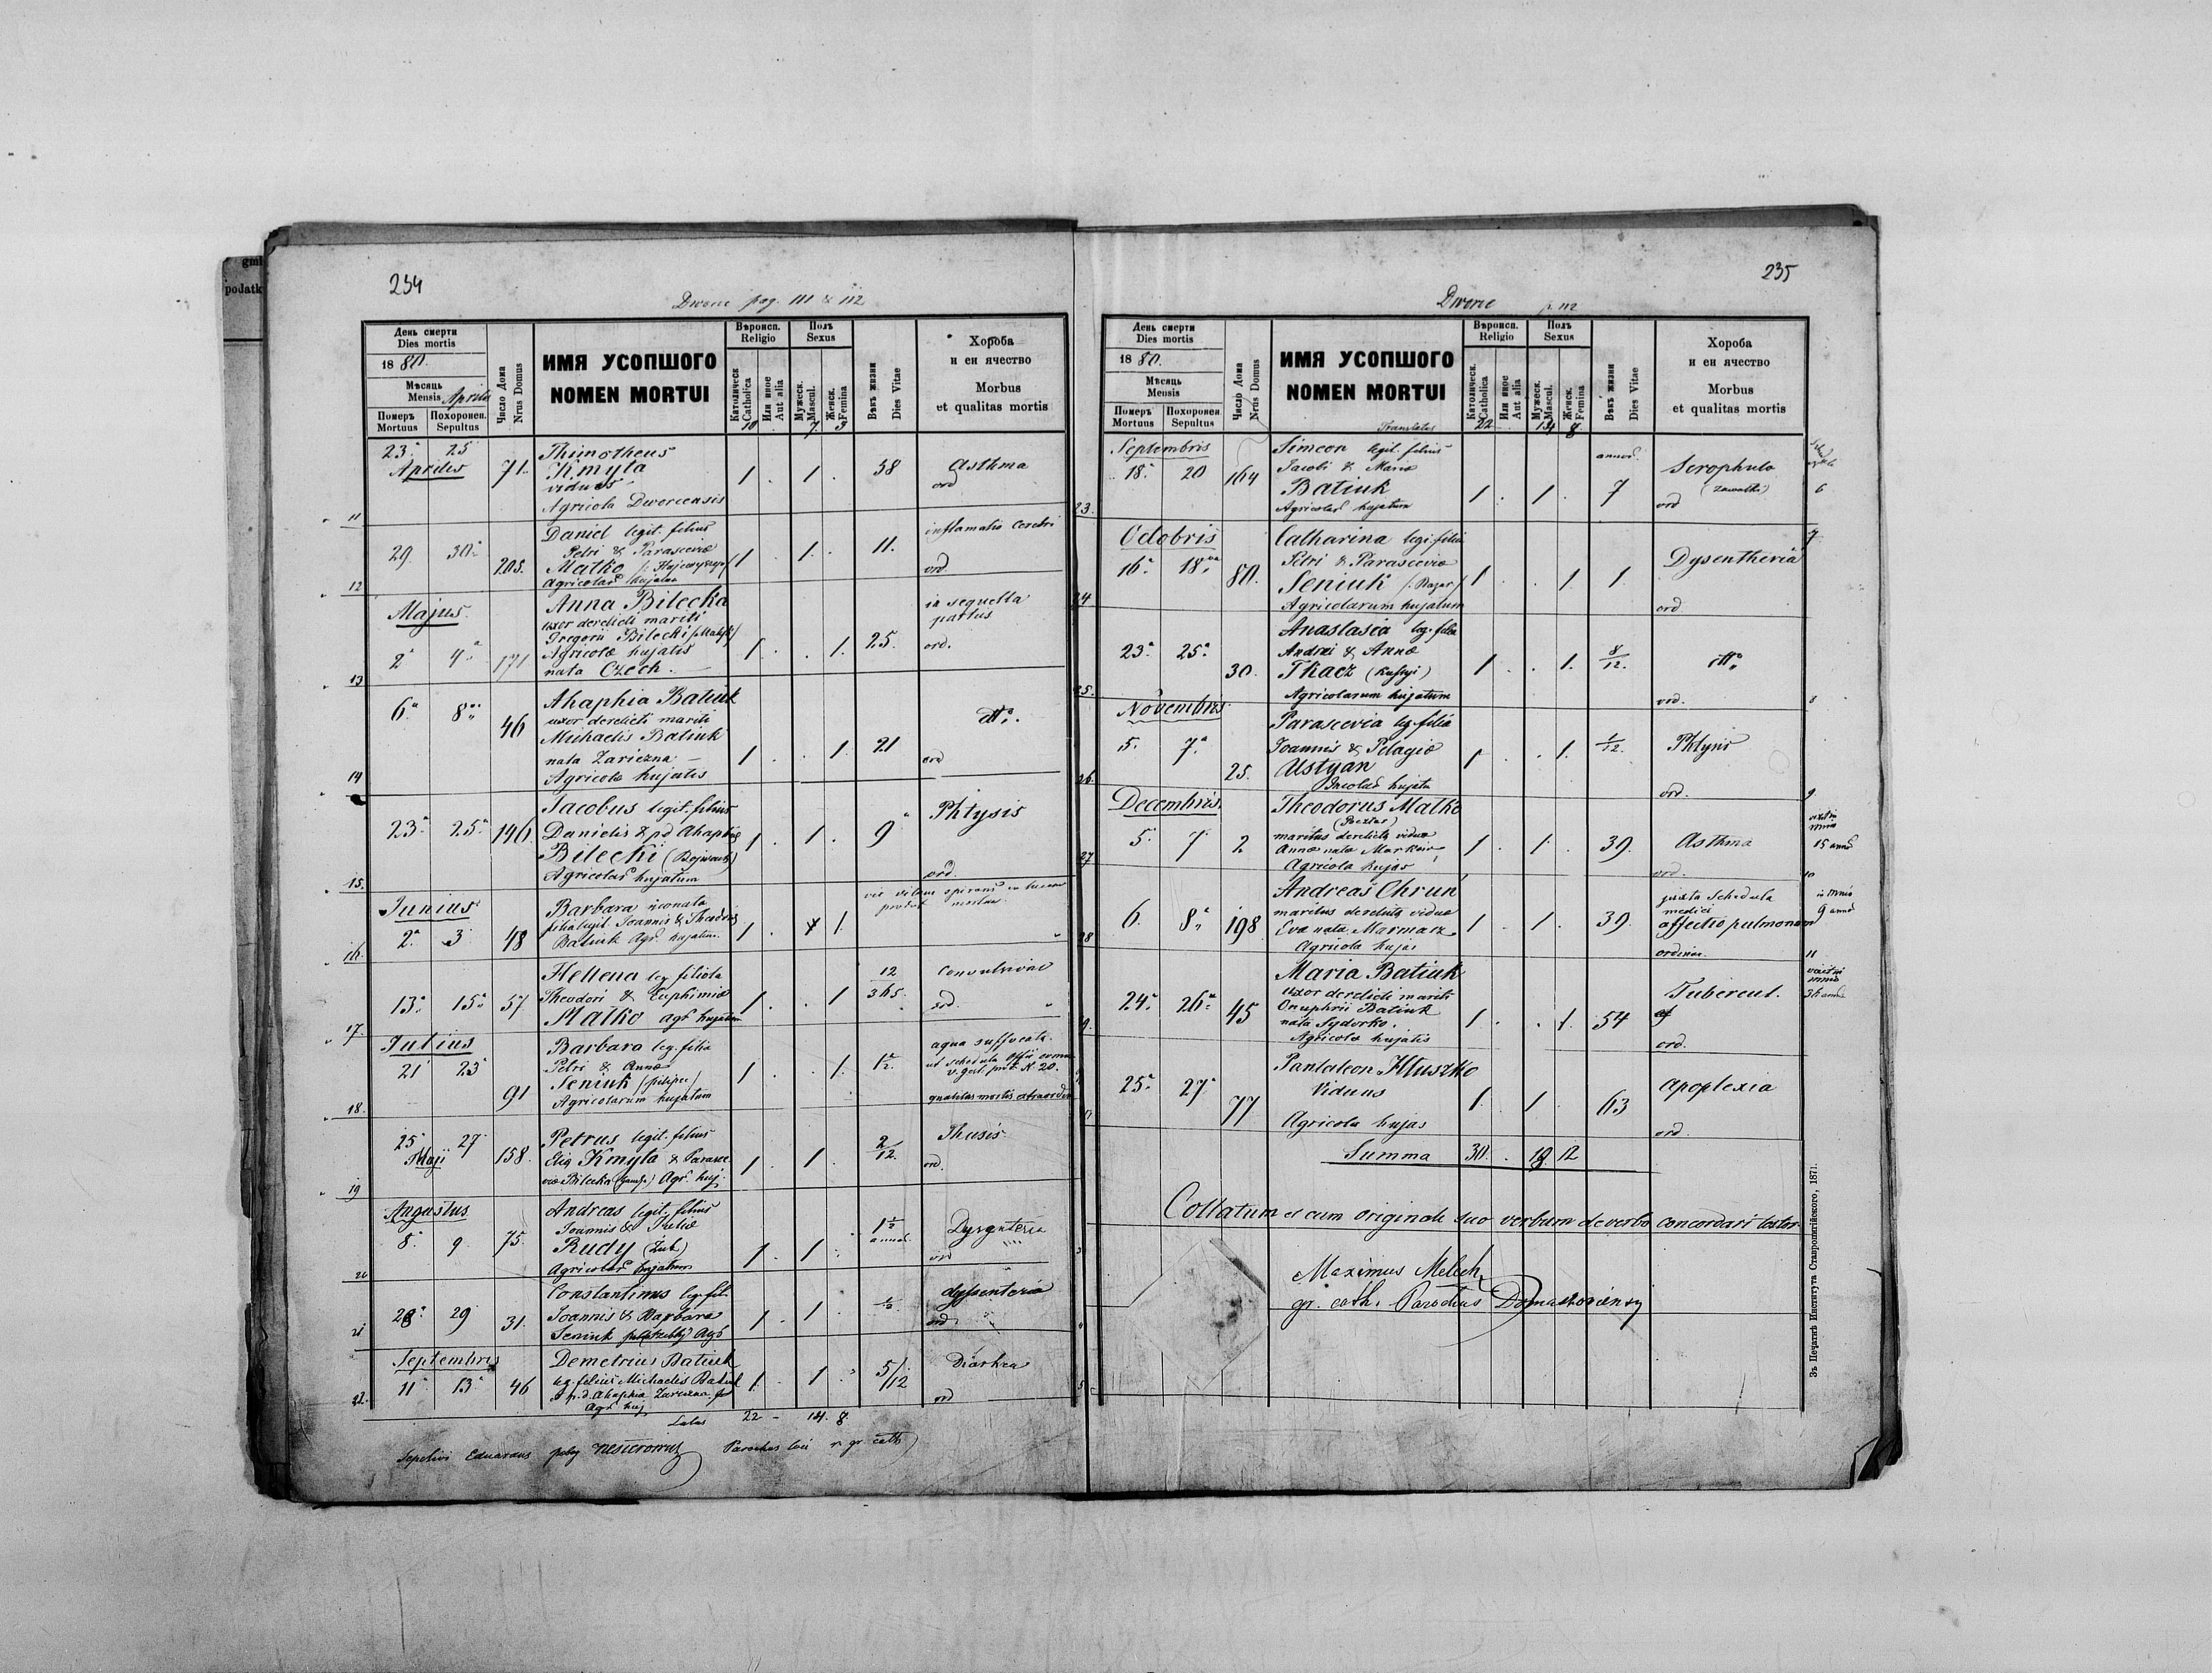 gmi
podatk
234
Dworce pag. 111 & 112
День смерти
Dies mortis
1880.
Мѣсяць
Mensis Aprilis
Померъ
Mortuus
Похоронен.
Sepultus
Число Дома
Nrus Domus
ИМЯ УСОПШОГО
NOMEN MORTUI
Вѣроисп.
Religio
Католическ
Catholica
Или иное
Aut alia
Полъ
Sexus
Мужеск.
Mascul.
Женск.
Femina
Вѣкъ жизни
Dies Vitae
Хороба
и еи ячество
Morbus
et qualitas mortis
10 . 7 3
11
23 25
Aprilis
71
Thimotheus
Kmyta
viduus
Agricola Dworcensis
1 . 1 . 38
Asthma
ord
12
29 30
203
Daniel legit. filius
Petri & Parasceviæ
Matko
agricolar hujatum
1 . 1 . 11.
inflamatio Cerebri
ord.
13
Majus
2 4
171
Anna Bilecka
uxor derelicti mariti
Gregorii Bilecki
Agricolæ hujatis
nata Czech
1 . . 1. 25.
in sequella
partus
ord.
14
6 8
46
Ahaphia Batiuk
uxor derelicti mariti
Michaelis Batiuk
nata Zariczna
Agricolæ hujatis
1 . . 1. 21
dtto.
ord
15.
23 25
146
Jacobus legit. filius
Danielis & pd Ahaphiæ
Bilecki
Agricolar hujatum
1 . 1 . 9
Phtysis
ord.
16.
Junius
2. 3
48
Barbara neonata
filia legit. Joannis & Theodoriæ
Batiuk Agr. hujatum
1 . 1.
vix vitam spirans in lucem
17.
13. 15. 57
Hellena leg filiola
Theodori & Euphimiæ
Matko agr hujatum
1 . . 1
12
365.
Convulsiones
ord.
18.
Julius
21 23
91
Barbara leg. filia
Petri & Annæ
Seniuk
Agricolarum hujatum
1 . . 1 1 1/2
aqua suffocata
ut schedula
qualitas mortis extraordin
19
25 27
Maji
158.
Petrus legit. filius
Eliæ Kmyta & Parasce
viæ Bilecka Agr. huj.
1 . 1 . 2/12.
Thusis
ord.
20
Augustus
8. 9. 75
Andreas legit. filius
Joannis & Juliæ
Rudy (Zub)
Agricolar hujatum
1 . 1 . 1 1/2
annor.
Dysenteria
ord
21
28 29 31.
Constantinus leg. fili
Joannis & Barbara
Seniuk Agr
1 . 1 . 1/2
dyssenteria
ord
22.
Septembris
11 13 46
Demetrius Batiuk
leg. filius Michaelis Batiuk
& p.d. Ahaphia Zariczna
Agr huj
1. . 1 . 5/12
Diarhea
ord
Latus 22 - 14. 8.
Sepelivi Eduardus Parochus loci r. gr. cath
235
Dworce p. 112
День смерти
Dies mortis
1880.
Мѣсяць
Mensis
Померъ
Mortuus
Похоронен
Sepultus
Число Дома
Nrus Domus
ИМЯ УСОПШОГО
NOMEN MORTUI
Translatus
Вѣроисп.
Religio
Католическ.
Catholica
Или иное
Aut alia
Полъ
Sexus
Мужеск.
Mascul.
Женск.
Femina
Вѣкъ жизни
Dies Vitae
Хороба
и еи ячество
Morbus
et qualitas mortis
22 14 8
23.
Septembris
18. 20 164
Simeon legit. filius
Jacobi & Mariæ
Batiuk
Agricolar hujatum
1 . 1 .
annor.
7
Scrophulo
ord
6
24
Octobris
16. 18. 80.
Catharina legi. filia
Petri & Parasceviæ
Seniuk
Agricolarum hujatum
1 . . 1 1.
Dysentheria
ord
7
25.
23. 25. 30.
Anastasia leg. filia
Andrei & Annæ
Tkacz
Agricolarum hujatum
1 . . 1. 8/12.
dtto.
ord.
8
26.
Novembris
5. 7. 25.
Parascevia leg. filia
Joannis & Pelagiæ
Ustyan
1 . . 1. 1/12.
Phtysis
ord.
9.
27
Decembris.
5. 7 2
Theodorus Matko
maritus derelictæ viduæ
Annæ natæ
Agricola hujas
1 . 1 . 39.
Asthma
ord.
15 annos
10
28
6. 8 198
Andreas Chrun
maritus derelictæ viduæ
Eva nata Marmarz
Agricola hujas
1 . 1 . 39.
juxta Schedula
medici
affectio pulmonum
ordinar.
9 annos
11
24. 26. 45
Maria Batiuk
uxor derelicti mariti
Onuphrii Batiuk
nata Sydorko.
Agricolæ hujatis
1 . . 1. 54
Tubercul.
ord.
25. 27 77
Pantaleon Hluszko
Viduus
Agricola hujas
1. . 1 . 63
Apoplexia
ord
Summa 30. . 18. 12
Collatum et cum originale suo verbum de verbo concordari testor
Maximus Melech
gr. cath. Parochus
Зъ Печатнѣ Института Ставропигійского, 1871.